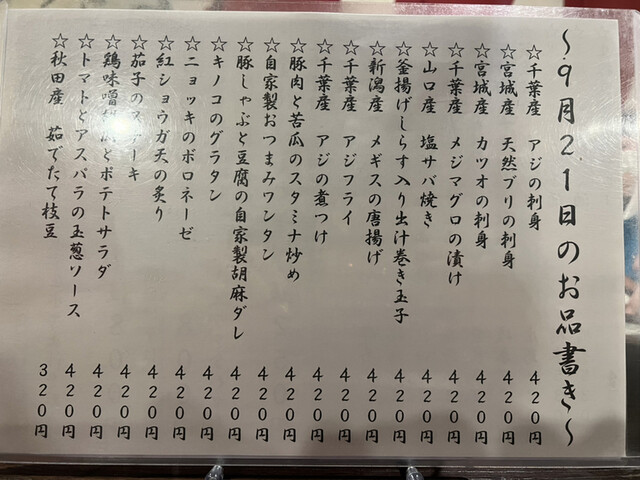 ～９月２１日のお品書き～
☆千葉産 アジの刺身 ４２０円
☆宮城産 天然ブリの刺身 ４２０円
☆宮城産 カツオの刺身 ４２０円
☆千葉産 メジマグロの漬け ４２０円
☆山口産 塩サバ焼き ４２０円
☆釜揚げしらす入り出汁巻き玉子 ４２０円
☆新潟産 メギスの唐揚げ ４２０円
☆千葉産 アジフライ ４２０円
☆千葉産 アジの煮つけ ４２０円
☆豚肉と苦瓜のスタミナ炒め ４２０円
☆自家製おつまみワンタン ４２０円
☆豚しゃぶと豆腐の自家製胡麻ダレ ４２０円
☆キノコのグラタン ４２０円
☆ニョッキのボロネーゼ ４２０円
☆紅ショウガ天の炙り ４２０円
☆茄子のステーキ ４２０円
☆鶏味噌 とポテトサラダ ４２０円
☆トマトとアスパラの玉葱ソース ４２０円
☆秋田産 茹でたて枝豆 ３２０円